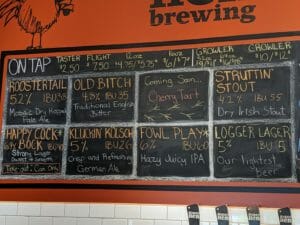 brewing
ON TAP
TASTER FLIGHT 12oz 16oz GROWLER CROWLER
$2.50 $7.50
ROOSTERTAIL
5.2% IBU 38
Mosaic Dry Hopped
Pale Ale
OLD BITCH
4.8% IBU 35
Traditional English
Bitter
Coming Soon...
Cherry Tart
STRUTTIN'
STOUT
4.2% IBU 55
Dry Irish Stout
HAPPY COCK
BOCK
Strong Lager
Sweet & Smooth
Take-out: Can Only
KLUCKIN KOLSCH
5% IBU 26
Crisp and Refreshing
German Ale
FOWL PLAY
6% IBU 60
Hazy Juicy IPA
LOGGER LAGER
5% IBU 5
Our lightest
beer